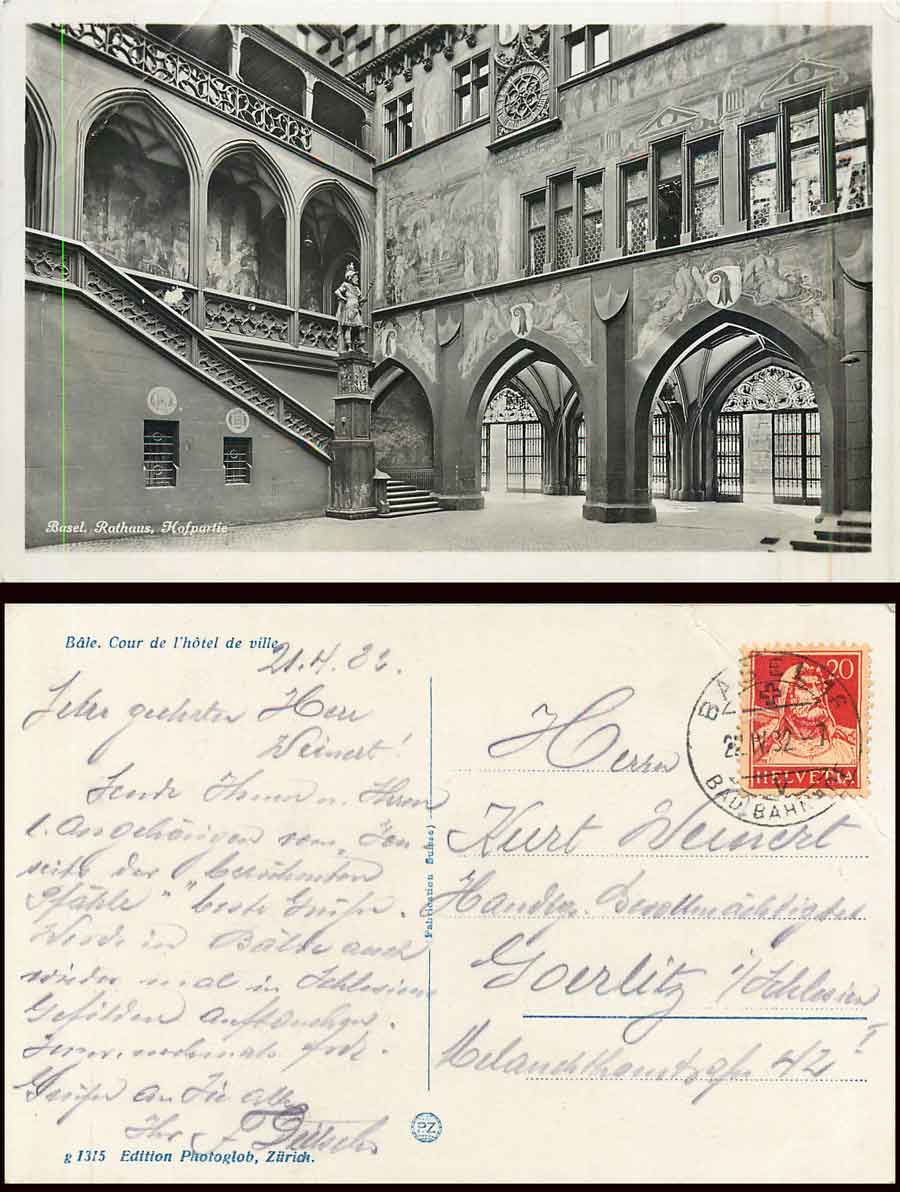 Basel. Rathaus, Hofpartie
Bâle. Cour de l'hôtel de ville
21.4.32.
Sehr geehrter Herr
Weinert!
Sende Ihnen u. Ihren
l. Angehörigen vom „Jen
seits der berühmten
Pfähle" beste Grüße.
Werde in Bälde auch
wieder mal in Schlesiens
Gefilden auftauchen.
nochmals
Grüße an Sie alle
Ihr F.
g 1315 Edition Photoglob, Zürich.
Fabrication Suisse
PZ
BASEL
22.IV.32
BAD. BAHNHOF
20
HELVETIA
Herrn
Kurt Weinert
Handlgs. Bevollmächtigter
Goerlitz i/Schlesien
Melanchthonstraße 42